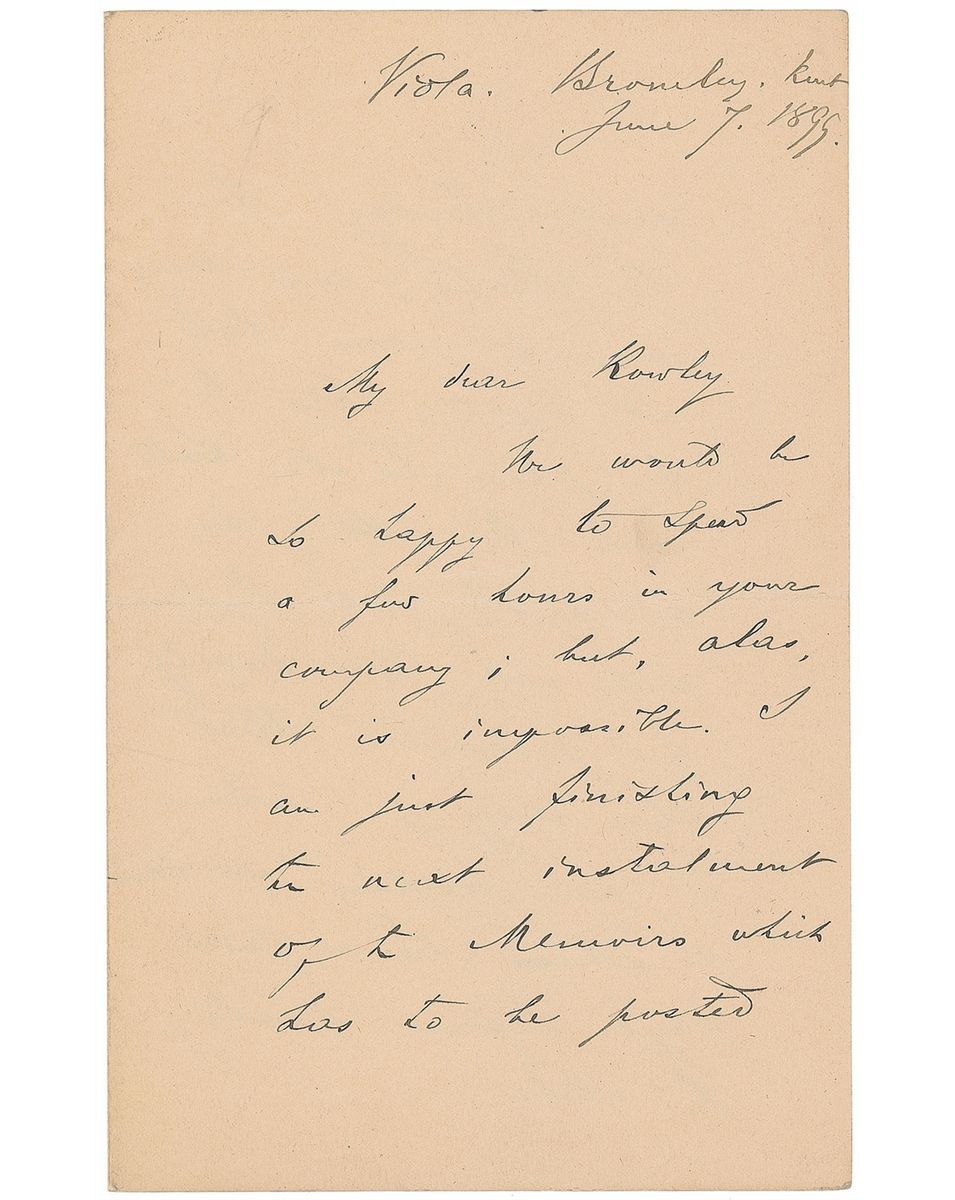 Viola. Bromley. Kent
June 7. 1899.
My dear Rowley
We would be
so happy to spend
a few hours in your
company; but, alas,
it is impossible. I
am just finishing
the next instalment
of the Memoirs which
has to be posted